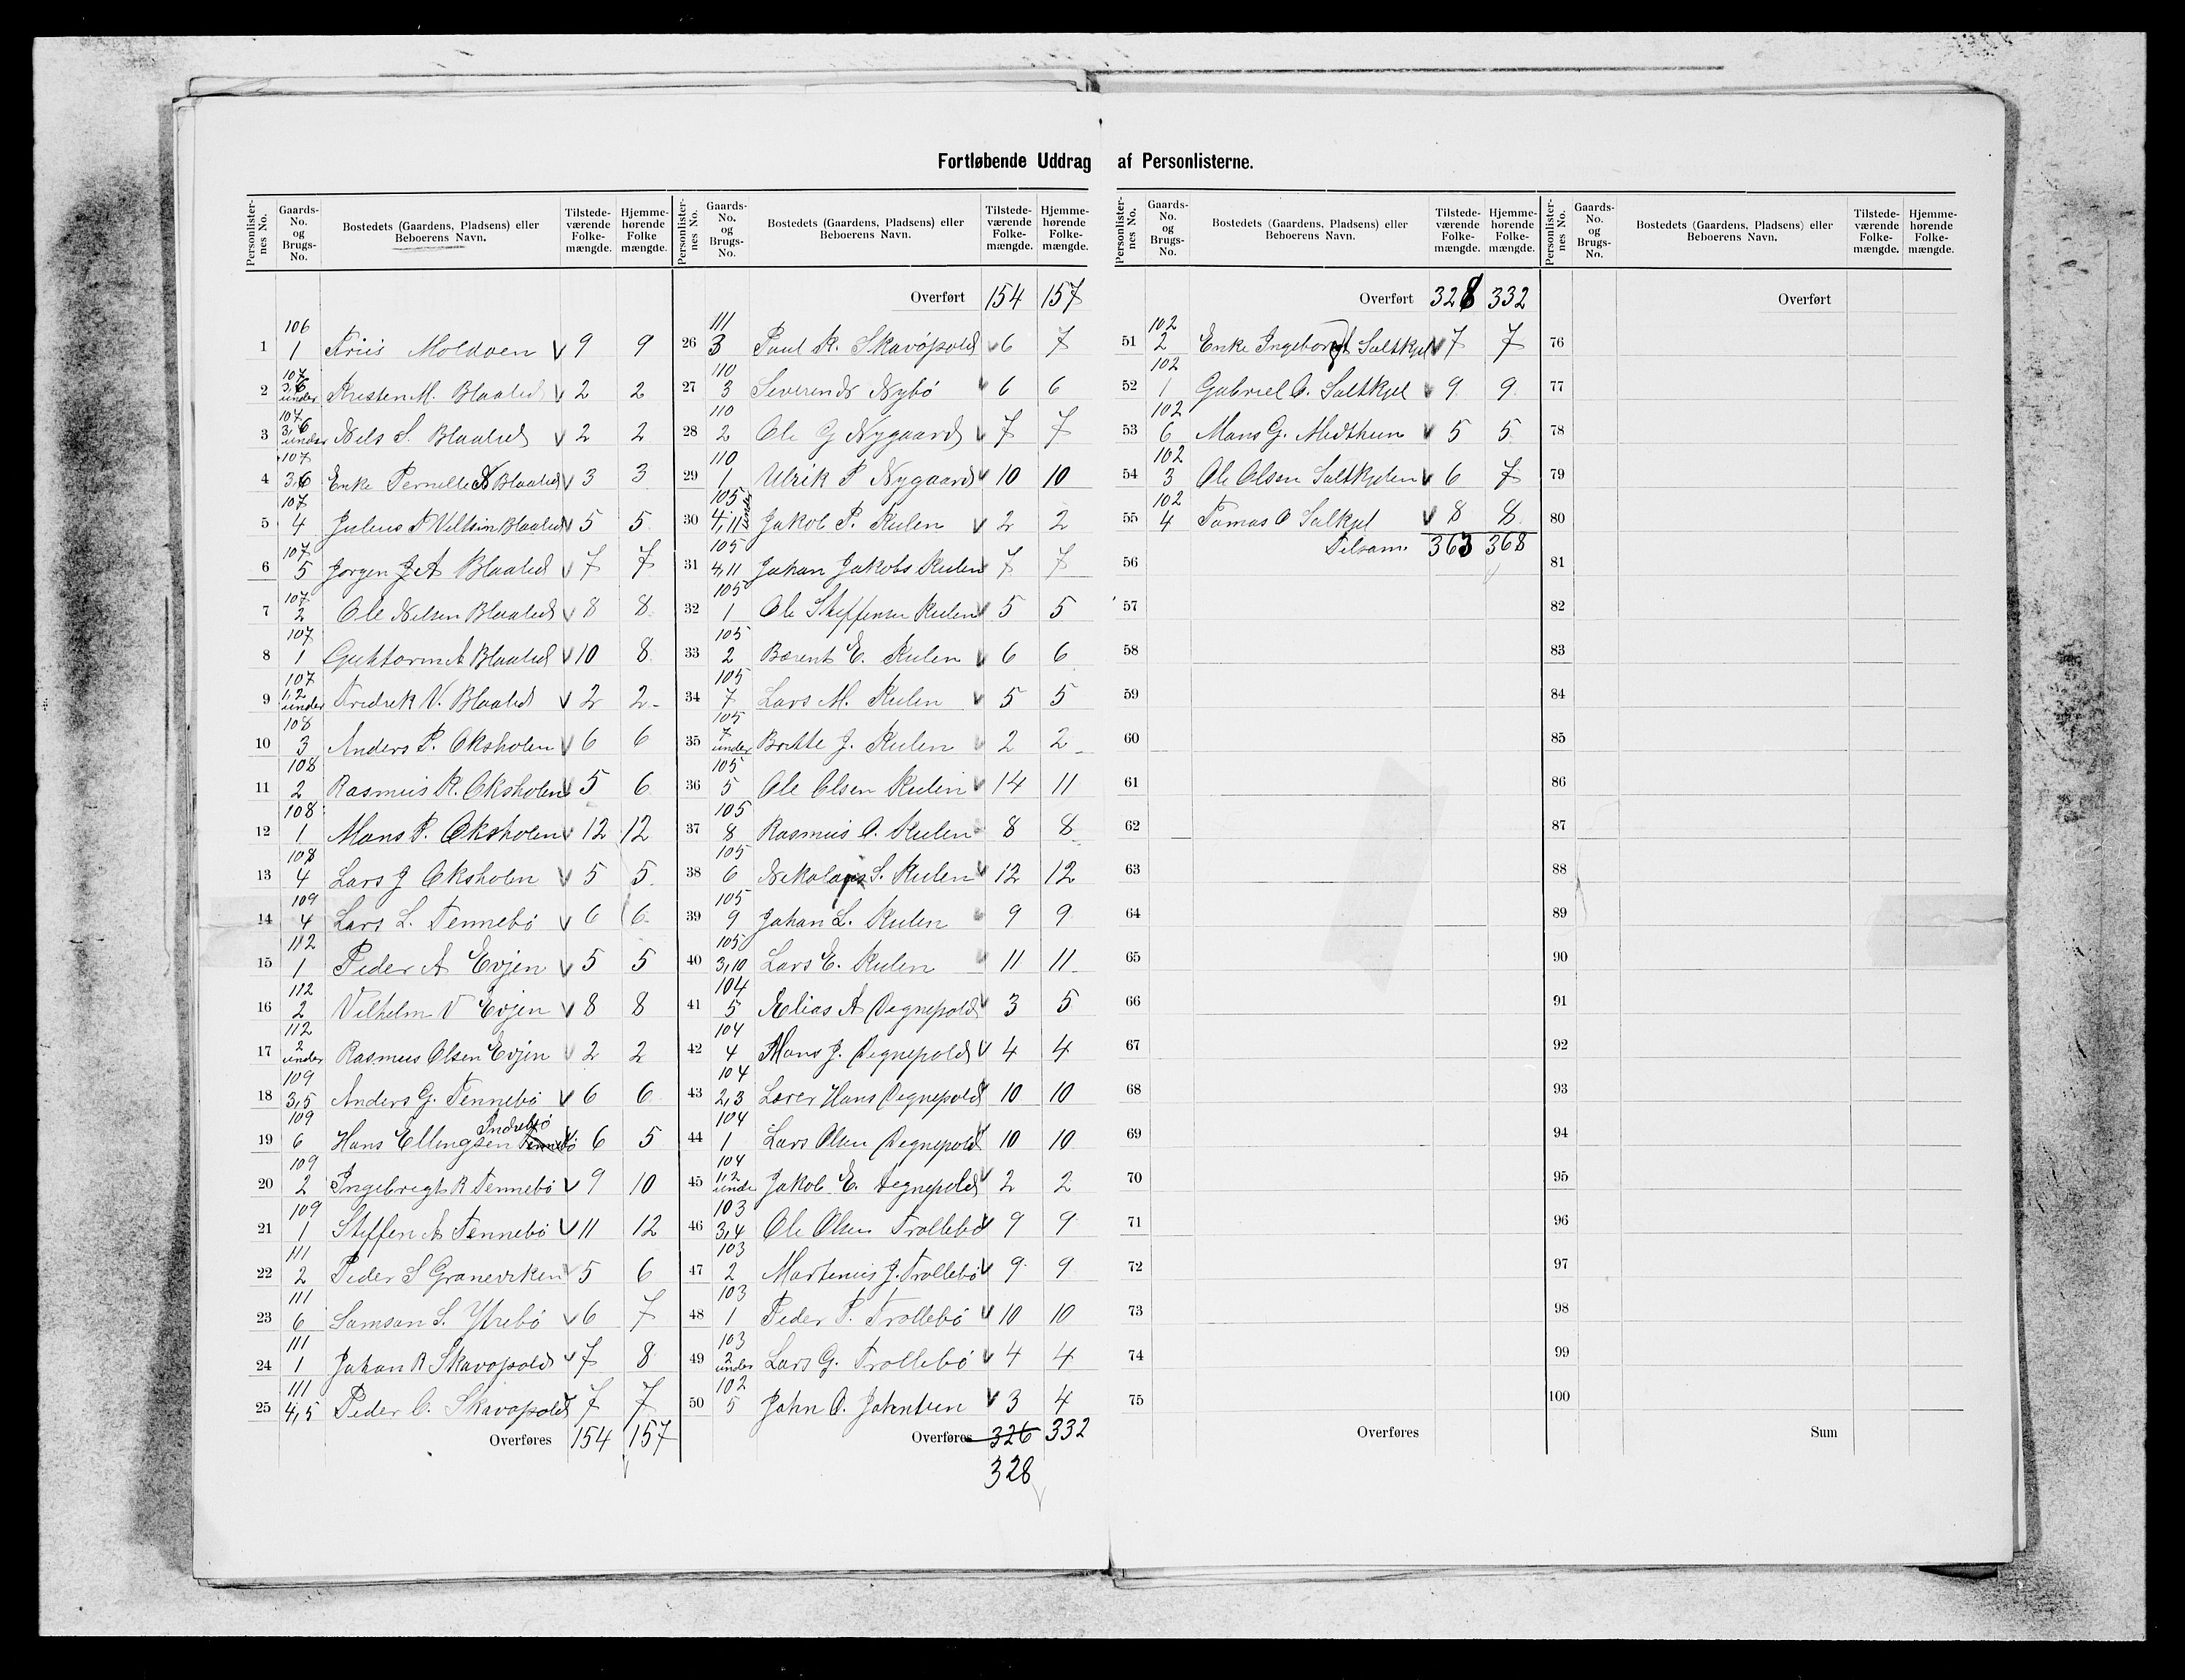 Fortløbende Uddrag af Personlisterne.
Personlister-nes No. Gaards-No. og Brugs-No. Bostedets (Gaardens, Pladsens) eller Beboerens Navn. Tilstede-værende Folke-mængde. Hjemme-hørende Folke mængde.
1 106 1 Friis Moldoen V 9 9
2 107 2,6 under Kristen M. Blaalid V 2 2
3 107 3,6 under Nels S. Blaalid V 2 2
4 107 3,6 Enke Pernille N Blaalid V 3 3
5 107 4 Julius Blaalid V 5 5
6 107 5 Jorgen J. A Blaalid V 7 7
7 107 2 Ole Nelsen Blaalid V 8 8
8 107 1 Guttorm A Blaalid V 10 8
9 107 1,2 under Fredrik V. Blaalid V 2 2
10 108 3 Anders P. Oksholen V 6 6
11 108 2 Rasmus R. Oksholen V 5 6
12 108 1 Mons P. Oksholen V 12 12
13 108 4 Lars J Oksholen V 5 5
14 109 4 Lars L. Tennebö V 6 6
15 112 1 Peder A Evjen V 5 5
16 112 2 Vilhelm V Evjen V 8 8
17 112 2 under Rasmus Olsen Evjen V 2 2
18 109 3,5 Anders G. Tennebö V 6 6
19 109 6 Hans Ellingsen Tennebö Indrebö V 6 5
20 109 2 Ingebregt R Tennebö V 9 10
21 109 1 Steffen A Tennebö V 11 12
22 111 2 Peder S Graneviken V 5 6
23 111 6 Samson S. Ytrebö V 6 7
24 111 1 Johan R Skavøpold V 7 8
25 111 4,5 Peder O. Skavøpold V 7 7
Overføres 154 157
Personlister-nes No. Gaards-No. og Brugs-No. Bostedets (Gaardens, Pladsens) eller Beboerens Navn. Tilstede-værende Folke-mængde. Hjemme-hørende Folke-mængde.
Overført 154 157
26 111 3 Paul R. Skavøpold V 6 7
27 110 3 Severin Nybö V 6 6
28 110 2 Ole G Nygaard V 7 7
29 110 1 Ulrik P Nygaard V 10 10
30 105 4,11 under Jakob P. Rulen V 2 2
31 105 4,11 Johan Jakobs Rulen V 7 7
32 105 1 Ole Steffensen Rulen V 5 5
33 105 2 Bærent E. Rulen V 6 6
34 105 7 Lars M. Rulen V 5 5
35 105 7 under Britte J. Rulen V 2 2
36 105 5 Ole Olsen Rulen V 14 11
37 105 8 Rasmus O. Rulen V 8 8
38 105 6 Nikolays S. Rulen V 12 12
39 105 9 Johan L. Rulen V 9 9
40 105 3,10 Lars E. Rulen V 11 11
41 104 5 Elias A Degnepold V 3 5
42 104 4 Mons J. Degnepold V 4 4
43 104 2,3 Lærer Hans Degnepold V 10 10
44 104 1 Lars Olsen Degnepold V 10 10
45 104 1,2 unde Jakob E. Degnepold V 2 2
46 103 3,4 Ole Olsen Trollebö V 9 9
47 103 2 Martenus J. Trollebö V 9 9
48 103 1 Peder P. Trollebö V 10 10
49 103 2 under Lars G. Trollebö V 4 4
50 102 5 John O. Johntun V 3 4
Overføres 326 332
328
Personlister-nes No. Gaards-No. og Brugs-No. Bostedets (Gaardens, Pladsens) eller Beboerens Navn. Tilstede-værende Folke-mængde. Hjemme-hørende Folke-mængde.
Overført 328 332
51 102 2 Enke Ingeborg Saltkjel V 7 7
52 102 1 Gabriel O. Saltkjel V 9 9
53 102 6 Mons G. Midthun V 5 5
54 102 3 Ole Olsen Saltkjelen V 6 7
55 102 4 Tomas O Salkjel V 8 8
56 Tilsam. 363 368
57
58
59
60
61
62
63
64
65
66
67
68
69
70
71
72
73
74
75
Overføres
Personlister-nes No. Gaards-No. og Brugs-No. Bostedets (Gaardens, Pladsens) eller Beboerens Navn. Tilstede-værende Folke-mængde. Hjemme-hørende Folke-mængde.
Overført
76
77
78
79
80
81
82
83
84
85
86
87
88
89
90
91
92
93
94
95
96
97
98
99
100
Sum